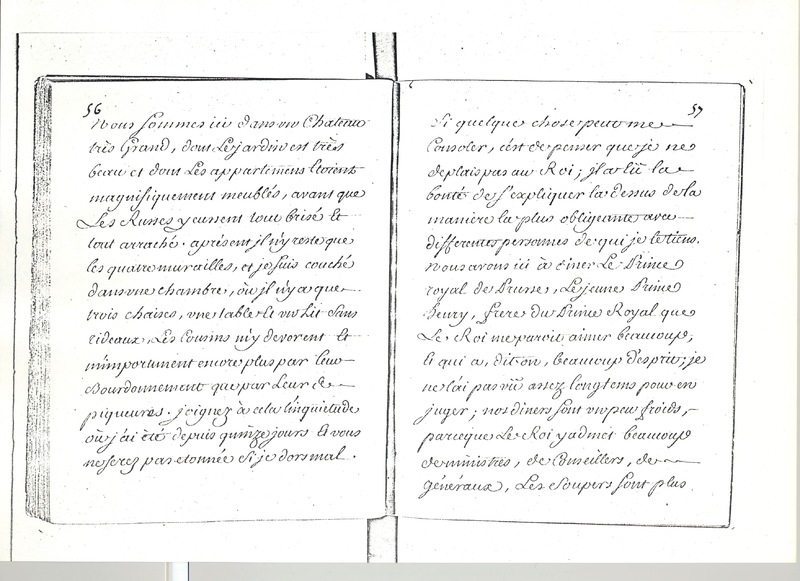 56
Nous sommes ici dans un Chateau
très Grand, dont Le jardin est très
beau et dont Les appartemens Etoient
magnifiquement meublés, avant que
Les Russes y eussent tout brisé Et
tout arraché. aprésent jl n'y reste que
les quatre murailles, et je suis couché
dans une chambre, où jl n'y a que
trois chaises, une table Et un Lit sans
rideaux, Les Cousins m'y devorent Et
m'importunent encore plus par leur
Bourdonnement que par Leur de
piqueures. joignez à cela l'inquietude
où j'ai été depuis quinze jours Et vous
ne serez pas etonnée si je dors mal.
57
Si quelque chose peut me
Consoler, c'est de penser que je ne
deplais pas au Roi; jl a eû la
bonté de s'expliquer la dessus de la
manière la plus obligeante avec
differentes personnes de qui je le tiens.
Nous avons ici à diner Le Prince
royal de Prusse, Le jeune Prince
henry, frere du Prince Royal que
Le Roi me paroit aimer beaucoup,
Et qui a, dit on, beaucoup d'esprit; je
ne l'ai pas vû assez longtems pour en
juger; nos diners sont un peu froids,
parceque Le Roi y admet beaucoup
de ministres, de Conseillers, de
généraux, Les soupers sont plus